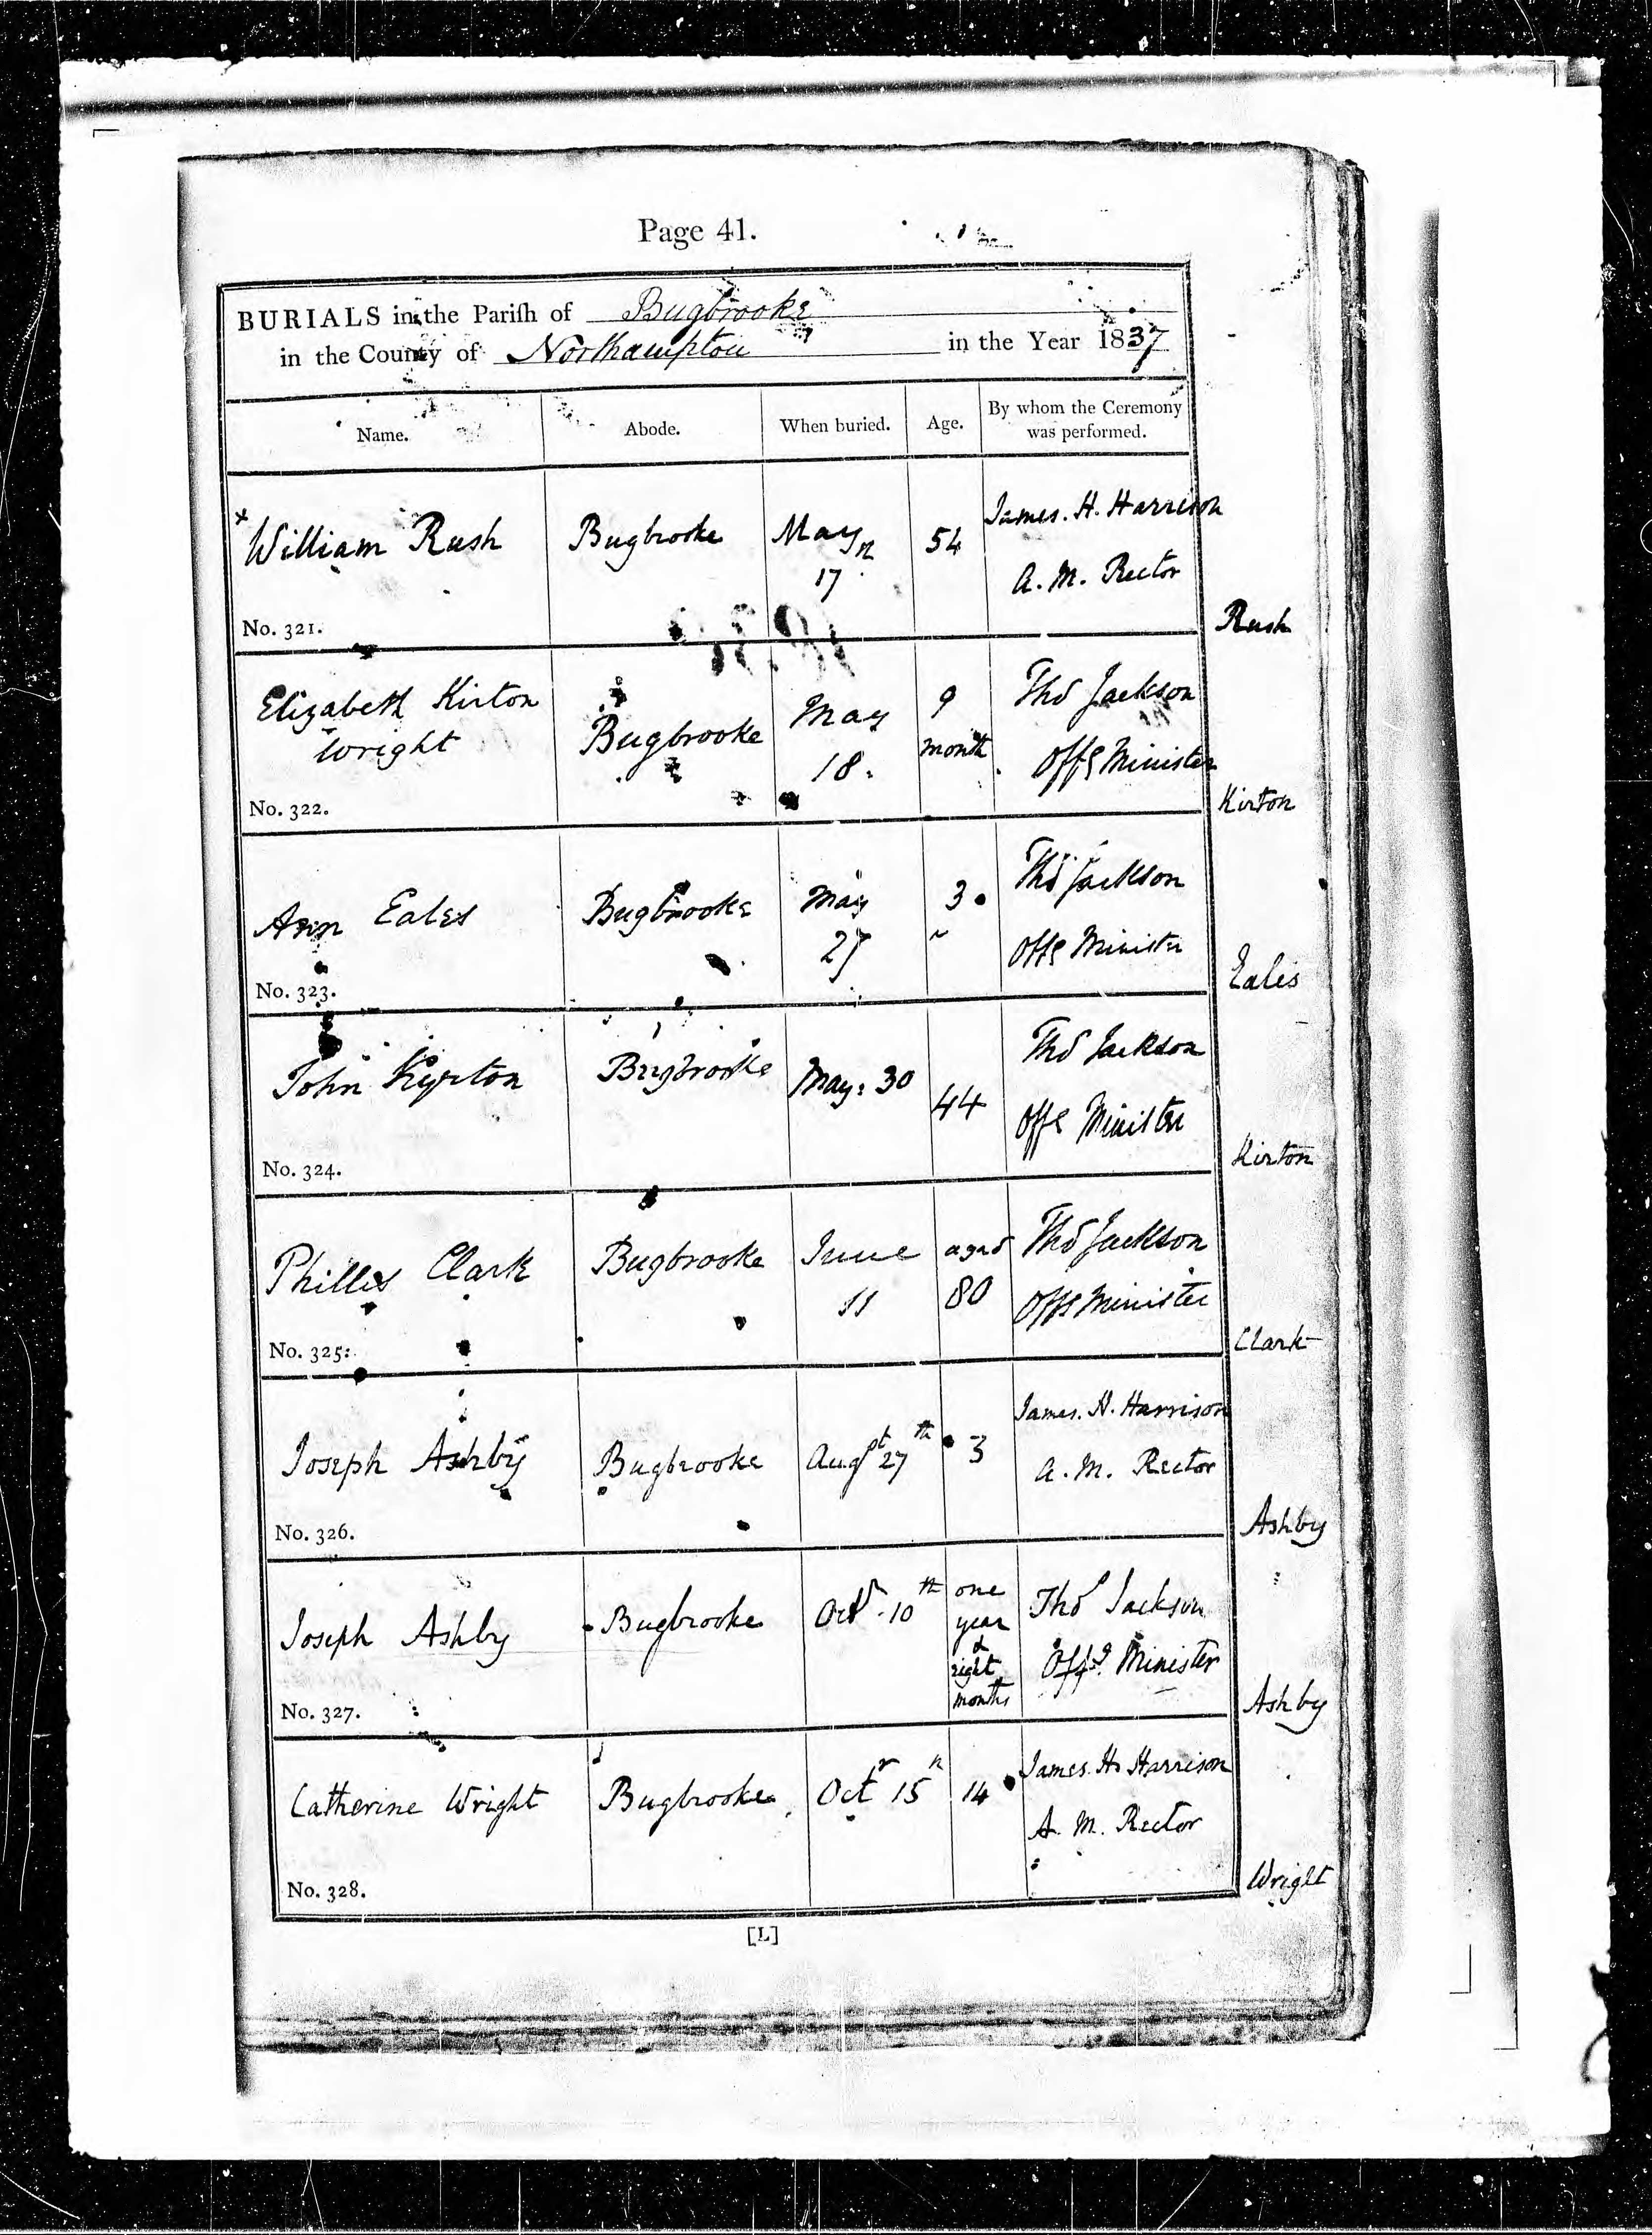 Page 41.
BURIALS in the Pariſh of Bugbrooke
in the County of Northampton in the Year 1837
Name. Abode. When buried. Age. By whom the Ceremony was performed.
x William Rush Bugbrooke May 17 54 James. H. Harrison
A. M. Rector
No. 321. Rush
Elizabeth Kirton Bugbrooke May 9 Thos Jackson
Wright 18. month Offg Minister
No. 322. Kirton
Ann Eales Bugbrooke May 3 Thos Jackson
27 Offg Minister
No. 323. Eales
John Kyrton Bugbrooke May: 30 44 Thos Jackson
Offg Minister
No. 324. Kirton
Phillis Clark Bugbrooke June aged Thos Jackson
11 80 Offg Minister
No. 325. Clark
Joseph Ashby Bugbrooke Augst 27th 3 James. H. Harrison
A. M. Rector
No. 326. Ashby
Joseph Ashby Bugbrooke Octr 10th one Thos Jackson
year
& Offg Minister
eight
months
No. 327. Ashby
Catherine Wright Bugbrooke Octr 15th 14 James. H. Harrison
A. M. Rector
No. 328. Wright
[L]